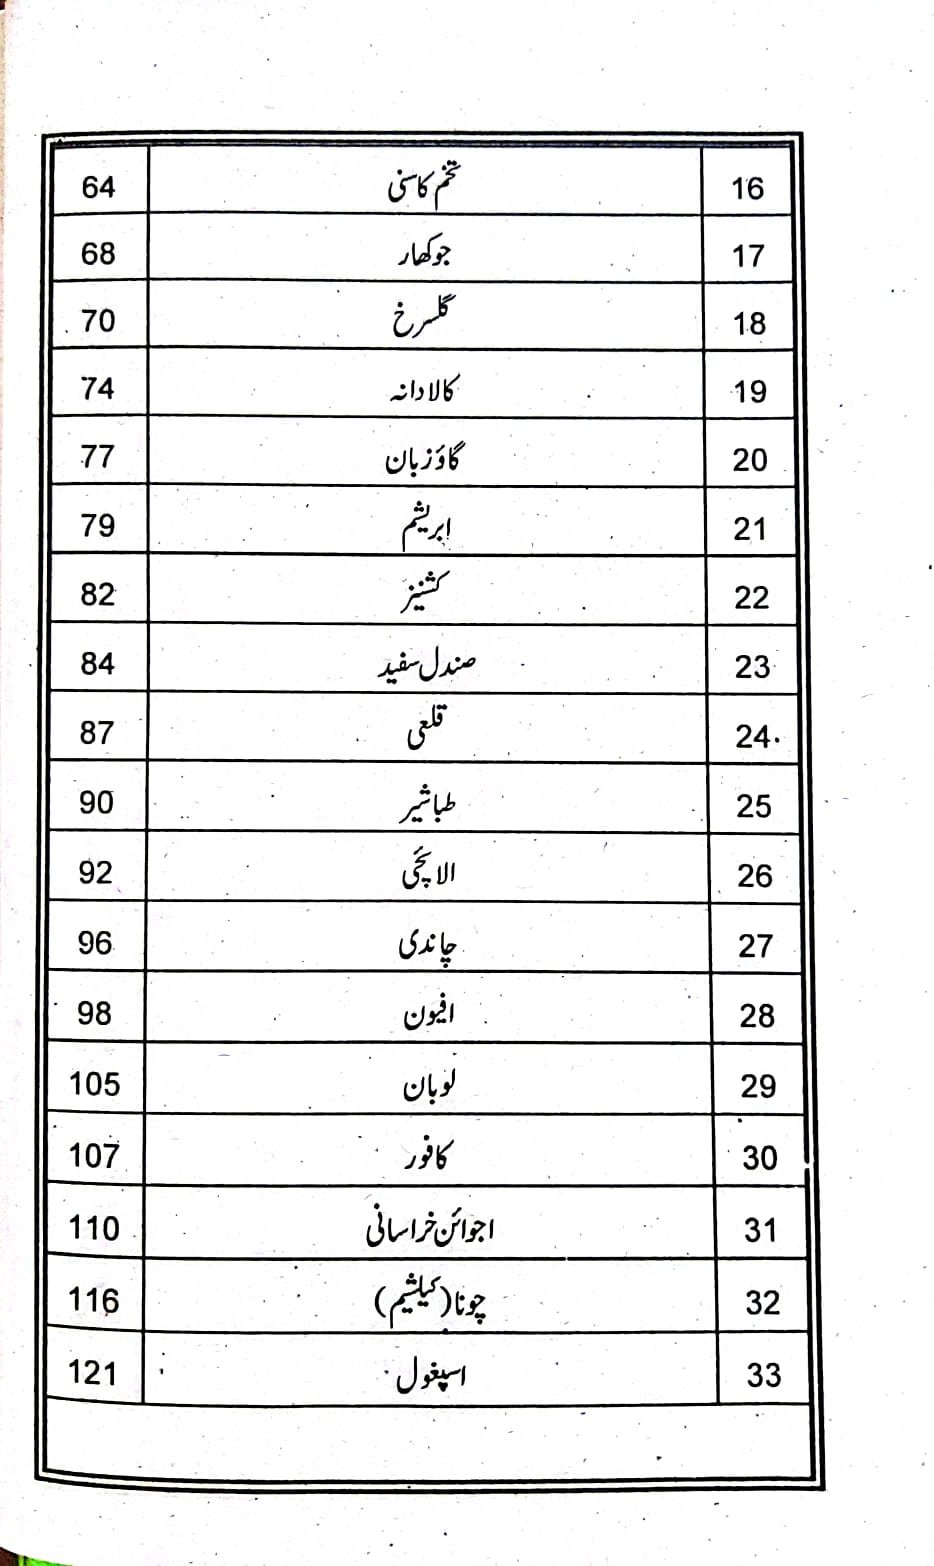 16 تخم کاسنی 64
17 جوکھار 68
18 گلسرخ 70
19 کالا دانہ 74
20 گاؤزبان 77
21 ابریشم 79
22 کشنیز 82
23 صندل سفید 84
24 قلعی 87
25 طباشیر 90
26 الائچی 92
27 چاندی 96
28 افیون 98
29 لوبان 105
30 کافور 107
31 اجوائن خراسانی 110
32 چونا (کیلشیم) 116
33 اسپغول 121